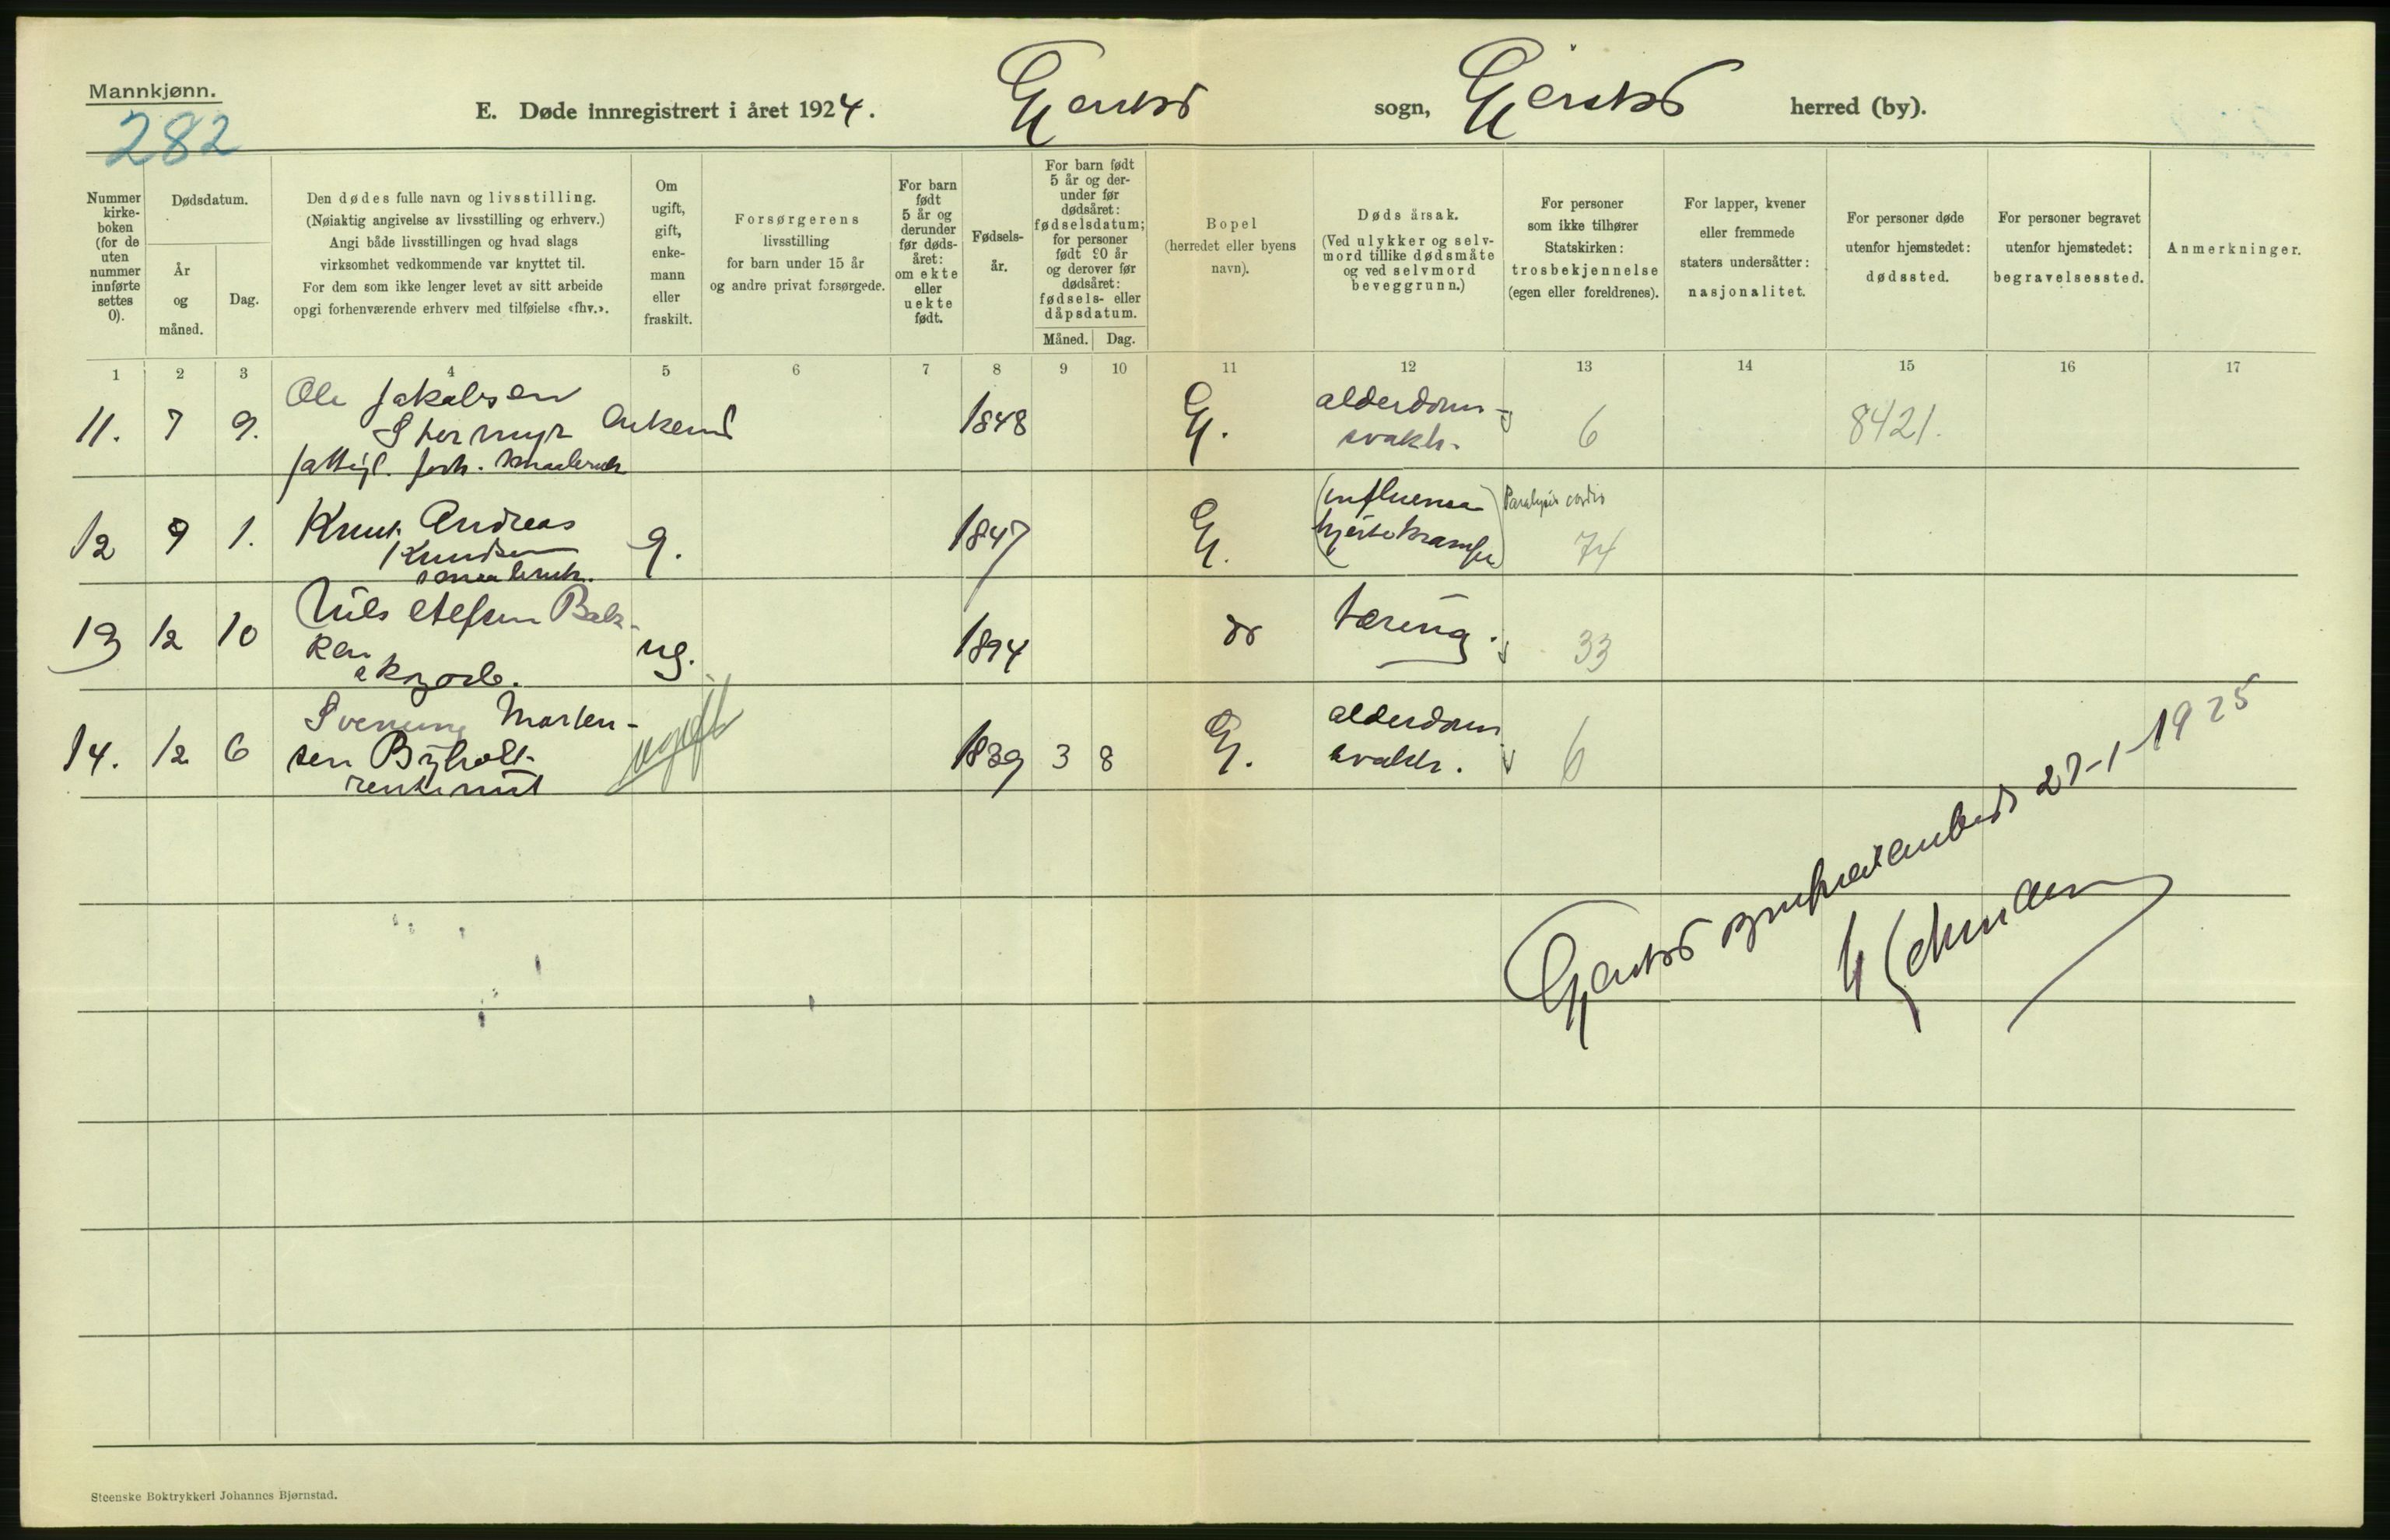 Mannkjønn.
282
E. Døde innregistrert i året 1924. Gjerstad sogn, Gjerstad herred (by).
Nummer kirkeboken (for de uten nummer innførte settes 0).
Dødsdatum.
År og måned.
Dag.
Den dødes fulle navn og livsstilling.
(Nøiaktig angivelse av livsstilling og erhverv.)
Angi både livsstillingen og hvad slags
virksomhet vedkommende var knyttet til.
For dem som ikke lenger levet av sitt arbeide
opgi forhenværende erhverv med tilføielse «fhv.».
Om ugift, gift, enkemann eller fraskilt.
Forsørgerens
livsstilling
for barn under 15 år
og andre privat forsørgede.
For barn født 5 år og derunder før dødsåret: om ekte eller uekte født.
Fødselsår.
For barn født 5 år og derunder før dødsåret: fødselsdatum; for personer født 90 år og derover før dødsåret: fødsels- eller dåpsdatum.
Måned. Dag.
Bopel
(herredet eller byens
navn).
Dødsårsak.
(Ved ulykker og selvmord tillike dødsmåte og ved selvmord beveggrunn.)
For personer
som ikke tilhører
Statskirken:
trosbekjennelse
(egen eller foreldrenes).
For lapper, kvener
eller fremmede
staters undersåtter:
nasjonalitet.
For personer døde
utenfor hjemstedet:
dødssted.
For personer begravet
utenfor hjemstedet:
begravelsessted.
Anmerkninger.
1 2 3 4 5 6 7 8 9 10 11 12 13 14 15 16 17
11. 7 9. Ole Jakobsen 1848 G. alderdoms- 6 8421.
Stormyr Enkem svakh.
fattigl. forh.
12 9 1. Knut Andreas g. 1847 G. (influensa Paralysis cordis
Knudsen hjertekrampe) 74
13 12 10 Nils Olefsen Bak- ug. 1894 do tæring. 33
ken
14. 12 6 Svenung Morten- ugift 1839 3 8 G. alderdoms 6
sen Byholt svakh.
Gjerstad sogneprestembede 27-1-1925
Steenske Boktrykkeri Johannes Bjørnstad.